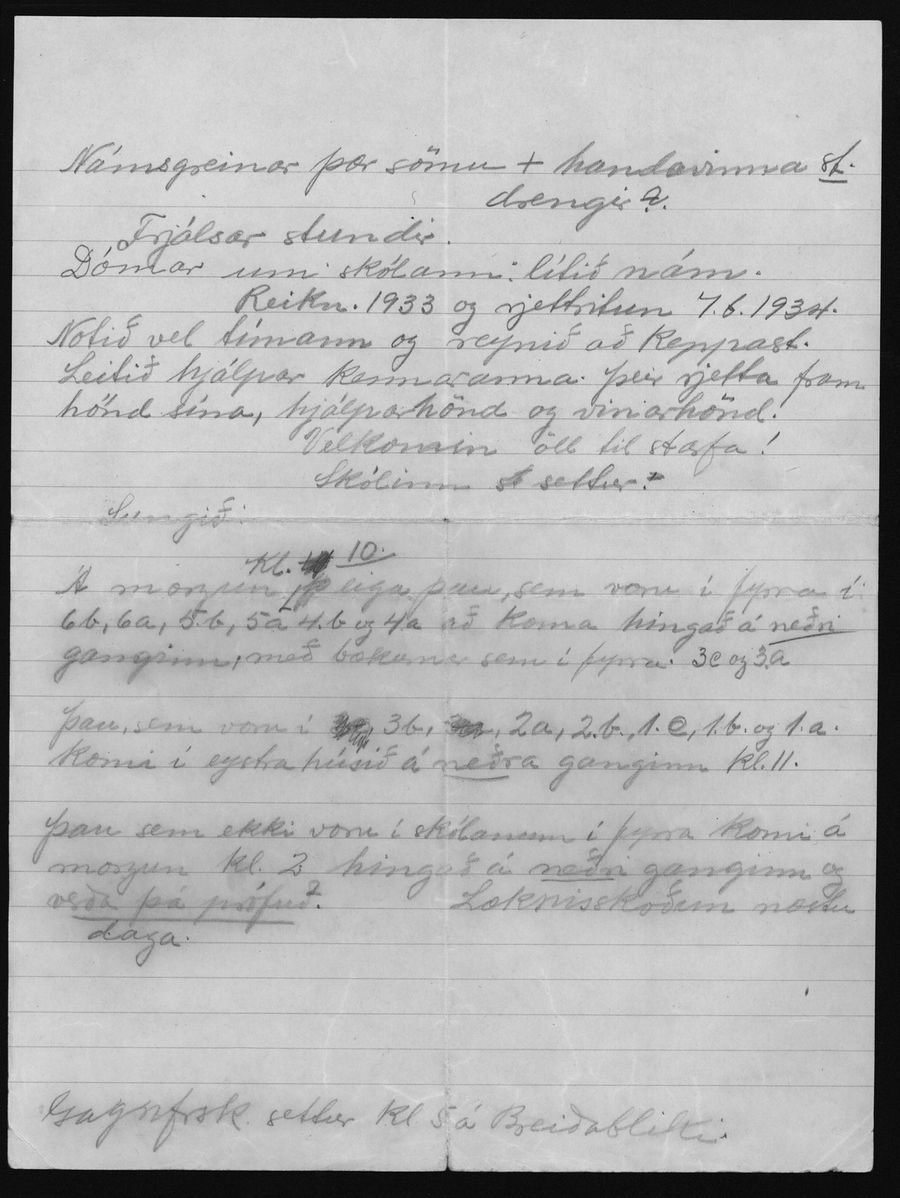 Námsgreinar þær sömu + handavinna st.
drengir?.
Frjálsar stundir.
Dómar um skólann: lítið nám.
Reikn. 1933 og rjettritun 7.b. 1934.
Notið vel tímann og reynið að keppast.
Leitið hjálpar kennaranna. Þeir rjetta fram
hönd sína, hjálparhönd og vinarhönd.
Velkomin öll til starfa!
Skólinn settur.
Sungið:
Kl. 10.
Á morgun eiga þau, sem voru í fyrra í
6b, 6a, 5.b, 5a 4.b og 4a að koma hingað á neðri
ganginn, með bækurnar sem í fyrra. 3c og 3.a
Þau, sem voru í 3b, 2a, 2.b., 1.c, 1.b. og 1.a.
komi í eystra húsið á neðra ganginn kl. 11.
Þau sem ekki voru í skólanum í fyrra komi á
morgun kl. 2 hingað á neðri ganginn og
verða þá prófuð. Læknisskoðun næstu
daga.
Gagnfrsk. settur kl 5 á Breiðabliki.